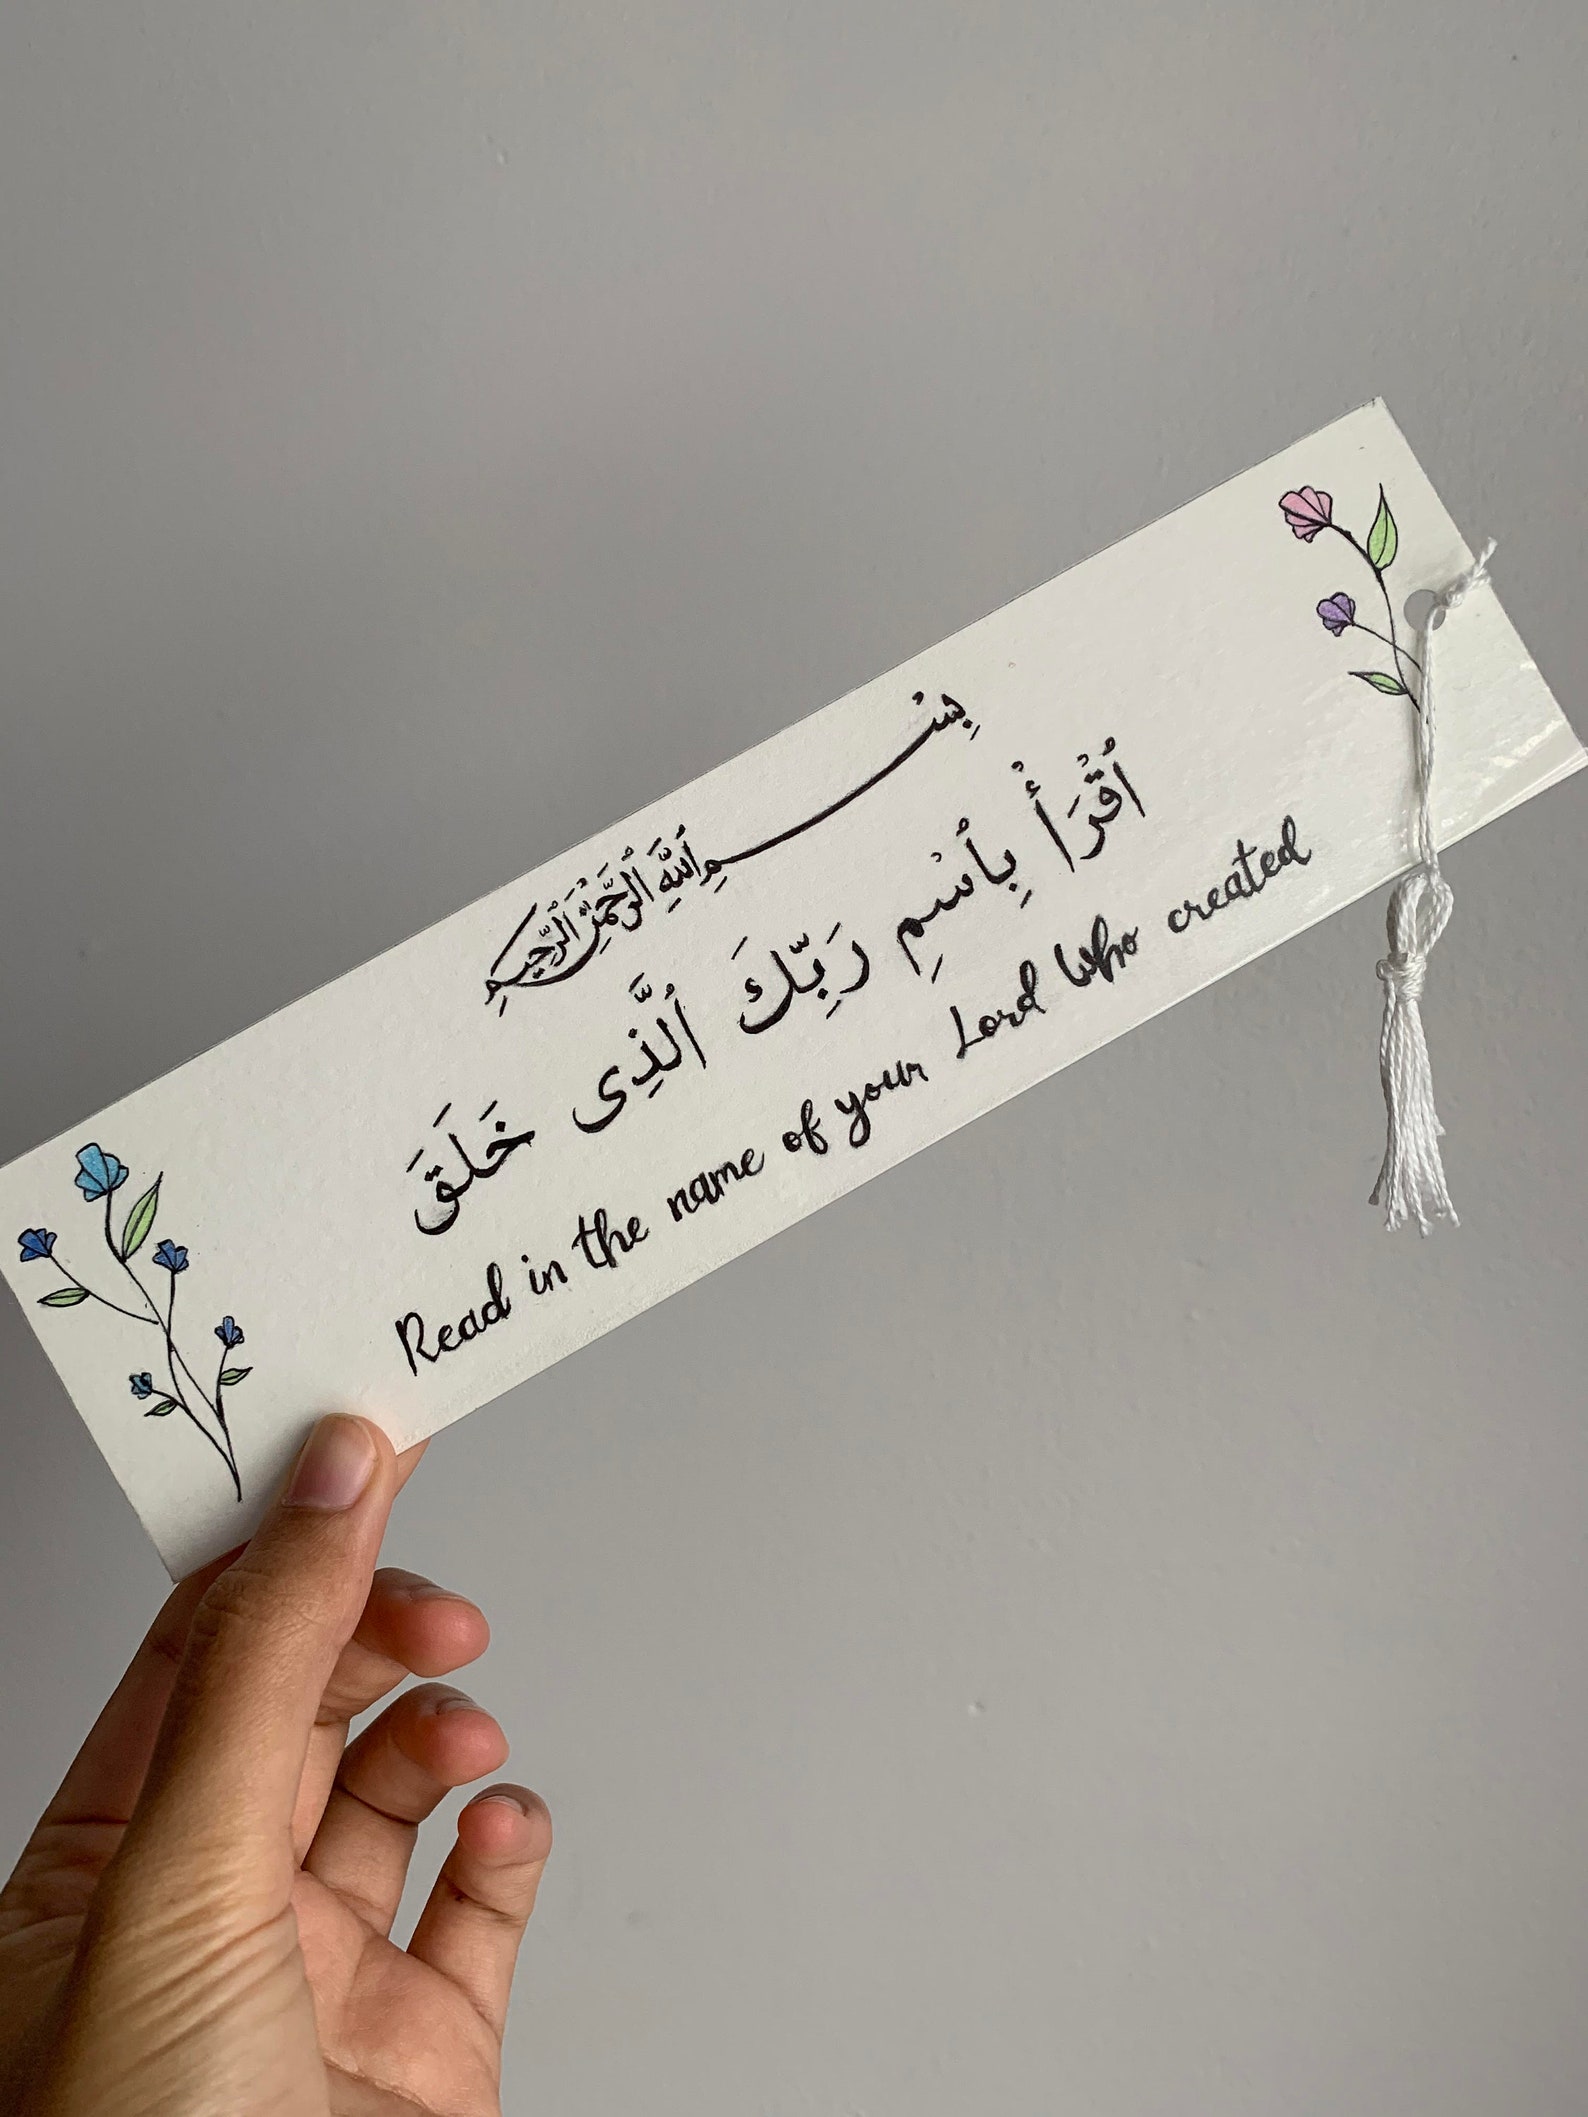 بِسْمِ ٱللَّهِ ٱلرَّحْمَٰنِ ٱلرَّحِيمِ
ٱقْرَأْ بِٱسْمِ رَبِّكَ ٱلَّذِى خَلَقَ
Read in the name of your Lord Who created